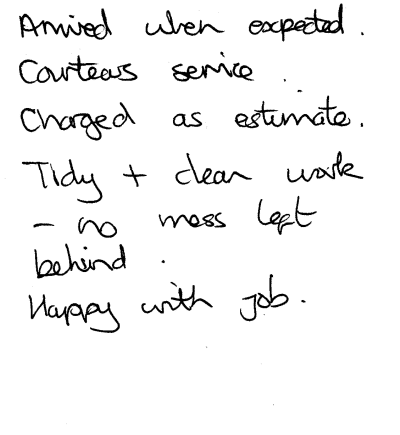 Arrived when expected.
Courteous service.
Charged as estimate.
Tidy + clean work
- no mess left
behind.
Happy with job.